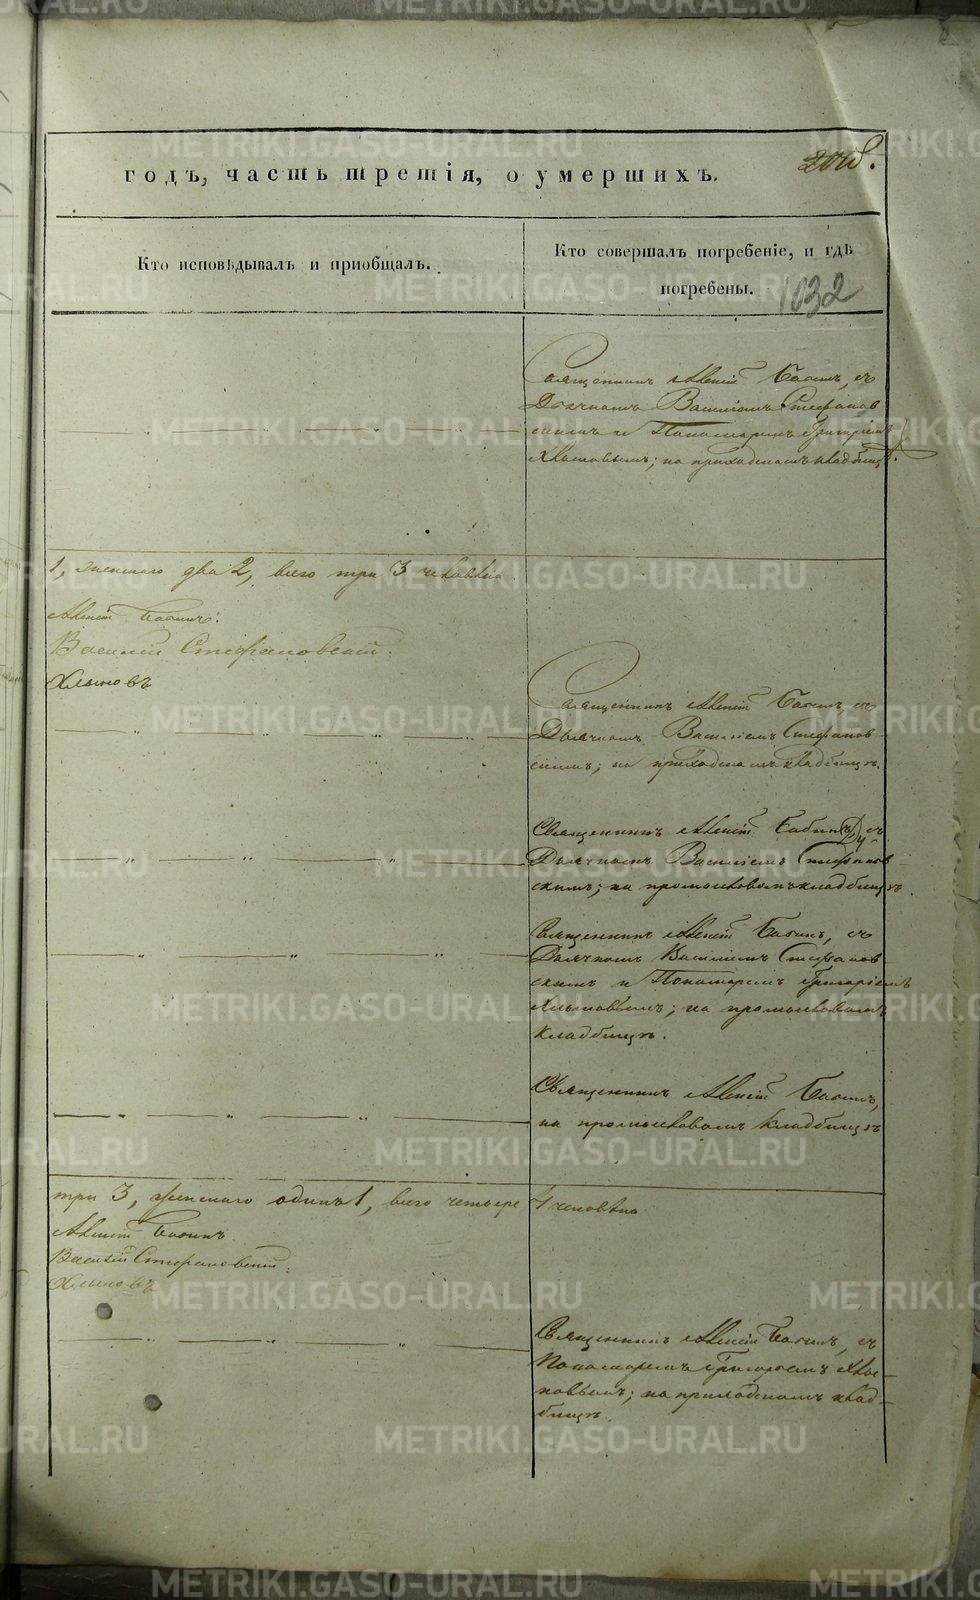 годъ, часть третія, о умершихъ.
Кто исповѣдывалъ и пріобщалъ.
Кто совершалъ погребеніе, и гдѣ
погребены.
1032
Священникъ Алексій Бабинъ, съ
Дьячкомъ Василіемъ Стефанов
скимъ и Пономаремъ Григоріемъ
Хлыновымъ; на приходскомъ кладбищѣ.
1, женскаго два 2, всего три 3 человѣка
Алексій Бабинъ.
Василій Стефановскій.
Хлыновъ
Священникъ Алексій Бабинъ, съ
Дьячкомъ Василіемъ Стефанов
скимъ; на приходскомъ кладбищѣ.
Священникъ Алексій Бабинъ, съ
Дьячкомъ Василіемъ Стефанов
скимъ; на промысловомъ кладбищѣ.
Священникъ Алексій Бабинъ, съ
Дьячкомъ Василіемъ Стефанов
скимъ и Пономаремъ Григоріемъ
Хлыновымъ; на промысловомъ
кладбищѣ.
Священникъ Алексій Бабинъ,
на промысловомъ кладбищѣ
три 3, женскаго одинъ 1, всего четыре 4 человѣка
Алексій Бабинъ
Василій Стефановскій.
Хлыновъ
Священникъ Алексій Бабинъ, съ
Пономаремъ Григоріемъ Хлы-
новымъ; на приходскомъ клад-
бищѣ.
METRIKI.GASO-URAL.RU